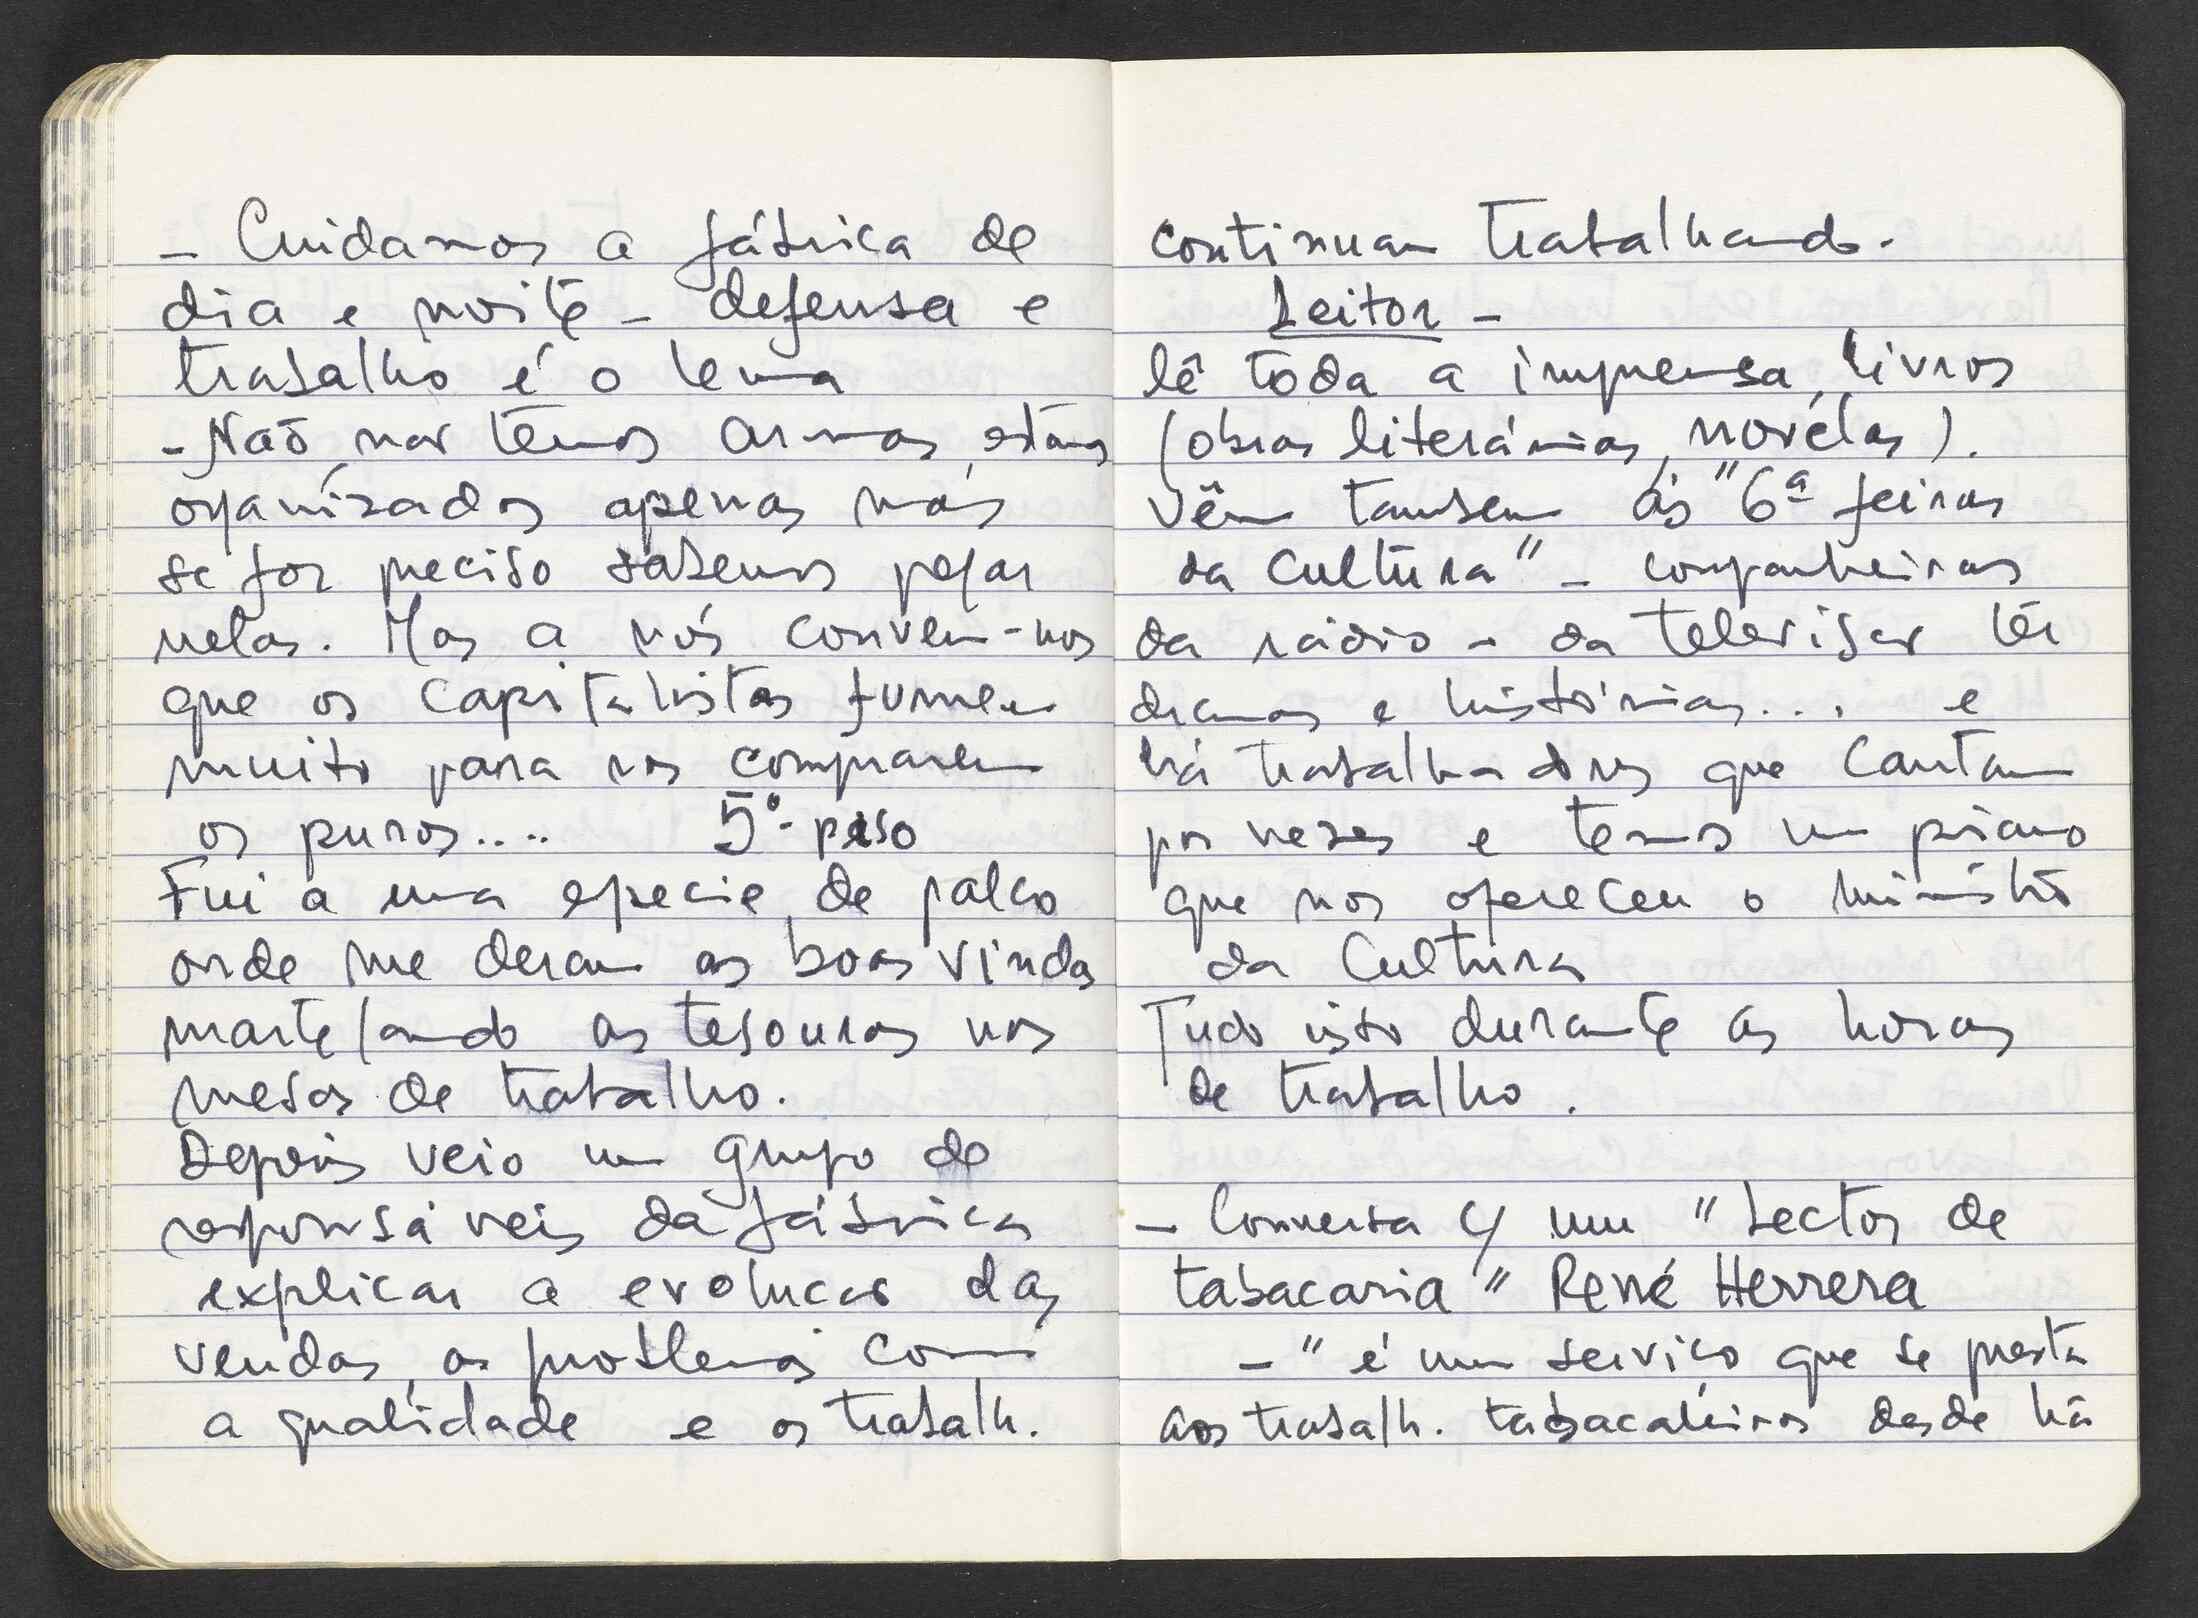 - Cuidamos a fábrica de
dia e noite - defensa e
trabalho é o lema
- Não nos temos armas, estamos
organizados apenas mas
se for preciso sabemos pegar
nelas. Mas a nós convem-nos
que os capitalistas fumem
muito para nos comprarem
os puros.... 5º- piso
Fui a uma especie de palco
onde me deram as boas vindas
martelando as tesouras nas
mesas de trabalho.
Depois veio um grupo de
responsáveis da fábrica
explicar a evolucao das
vendas, os problemas com
a qualidade e os trabalh.
continuam trabalhando.
Leitor -
lê toda a imprensa, livros
(obras literárias, novélas).
Vêm tambem ás "6ª feiras
da Cultura" - companheiros
da rádio - da televisao ler
dramas e histórias... e
há trabalhadores que cantam
por vezes e temos um piano
que nos ofereceu o ministro
da Cultura
Tudo isto durante as horas
de trabalho.
- Conversa c/ um "Lector de
tabacaria" René Herrera
- "é um serviço que se presta
aos trabalh. tabacaleiros desde há